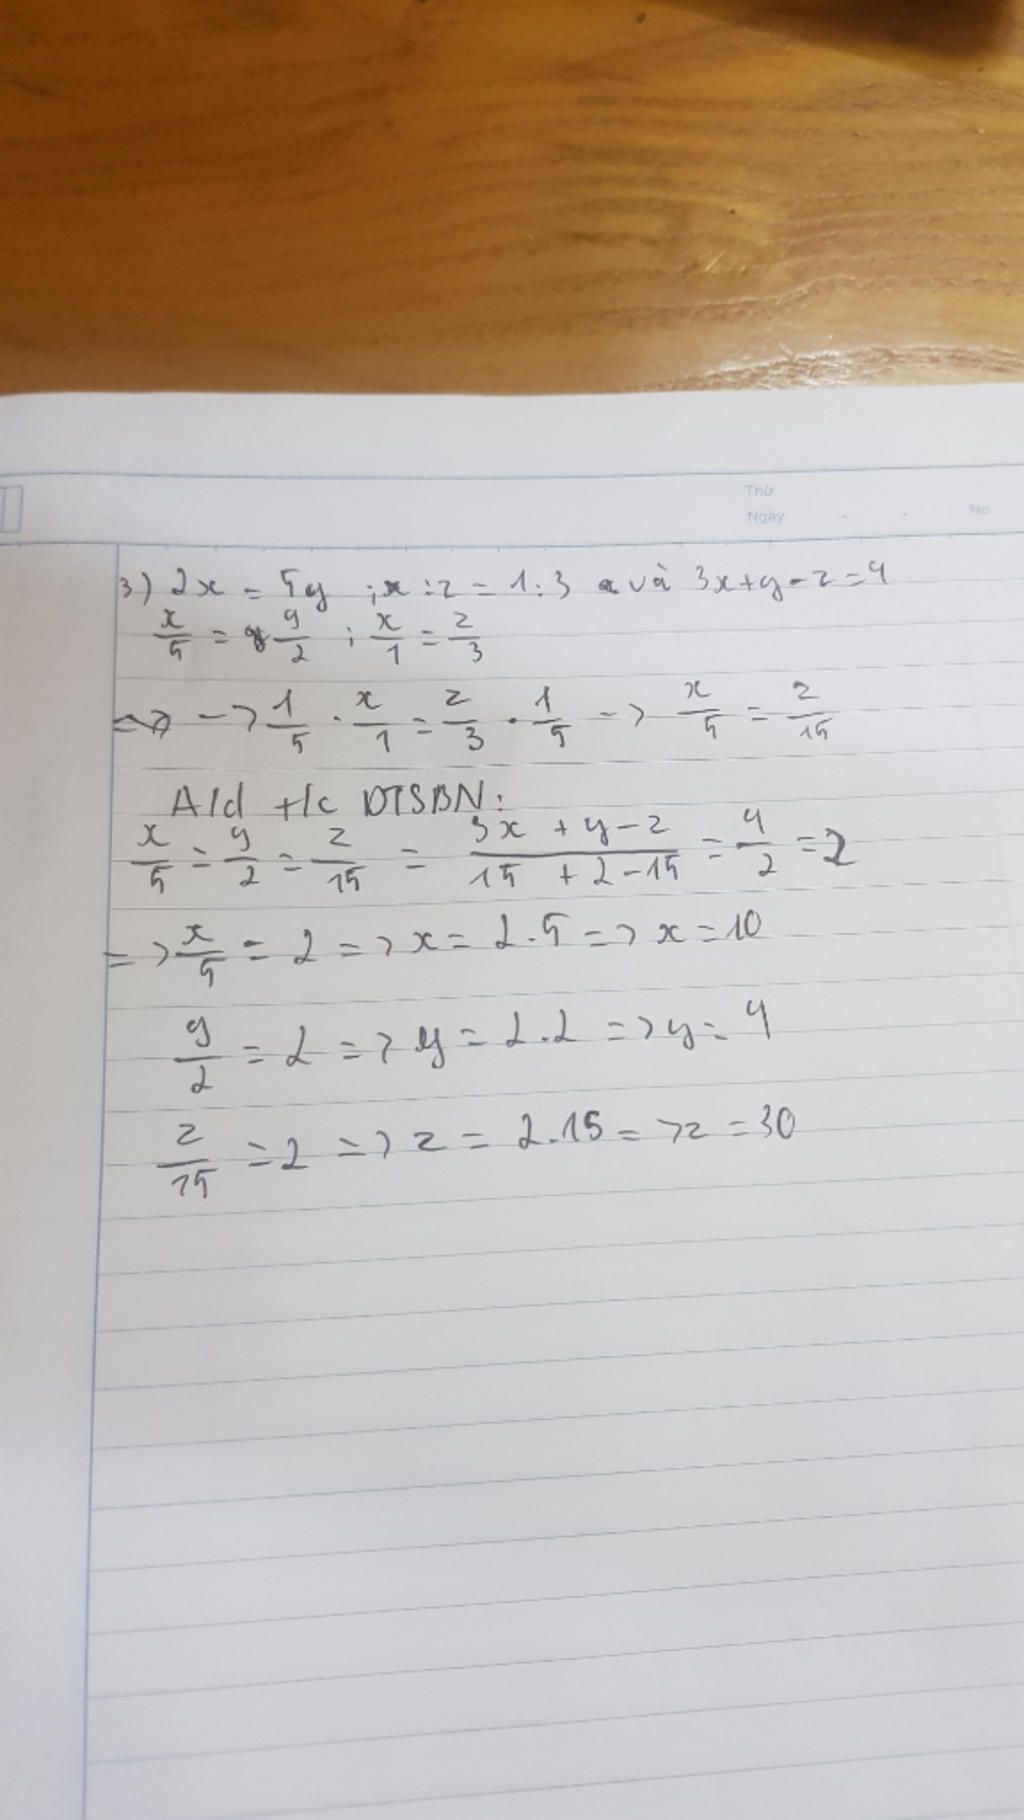 Thứ
Ngày . . No.
3) 2x = 5y ; x : z = 1 : 3 và 3x + y - z = 4
x/5 = y/2 ; x/1 = z/3
-> 1/5 . x/1 = z/3 . 1/5 -> x/5 = z/15
A/d t/c DTSBN:
x/5 = y/2 = z/15 = (3x + y - z)/(15 + 2 - 15) = 4/2 = 2
=> x/5 = 2 => x = 2.5 => x = 10
y/2 = 2 => y = 2.2 => y = 4
z/15 = 2 => z = 2.15 => z = 30